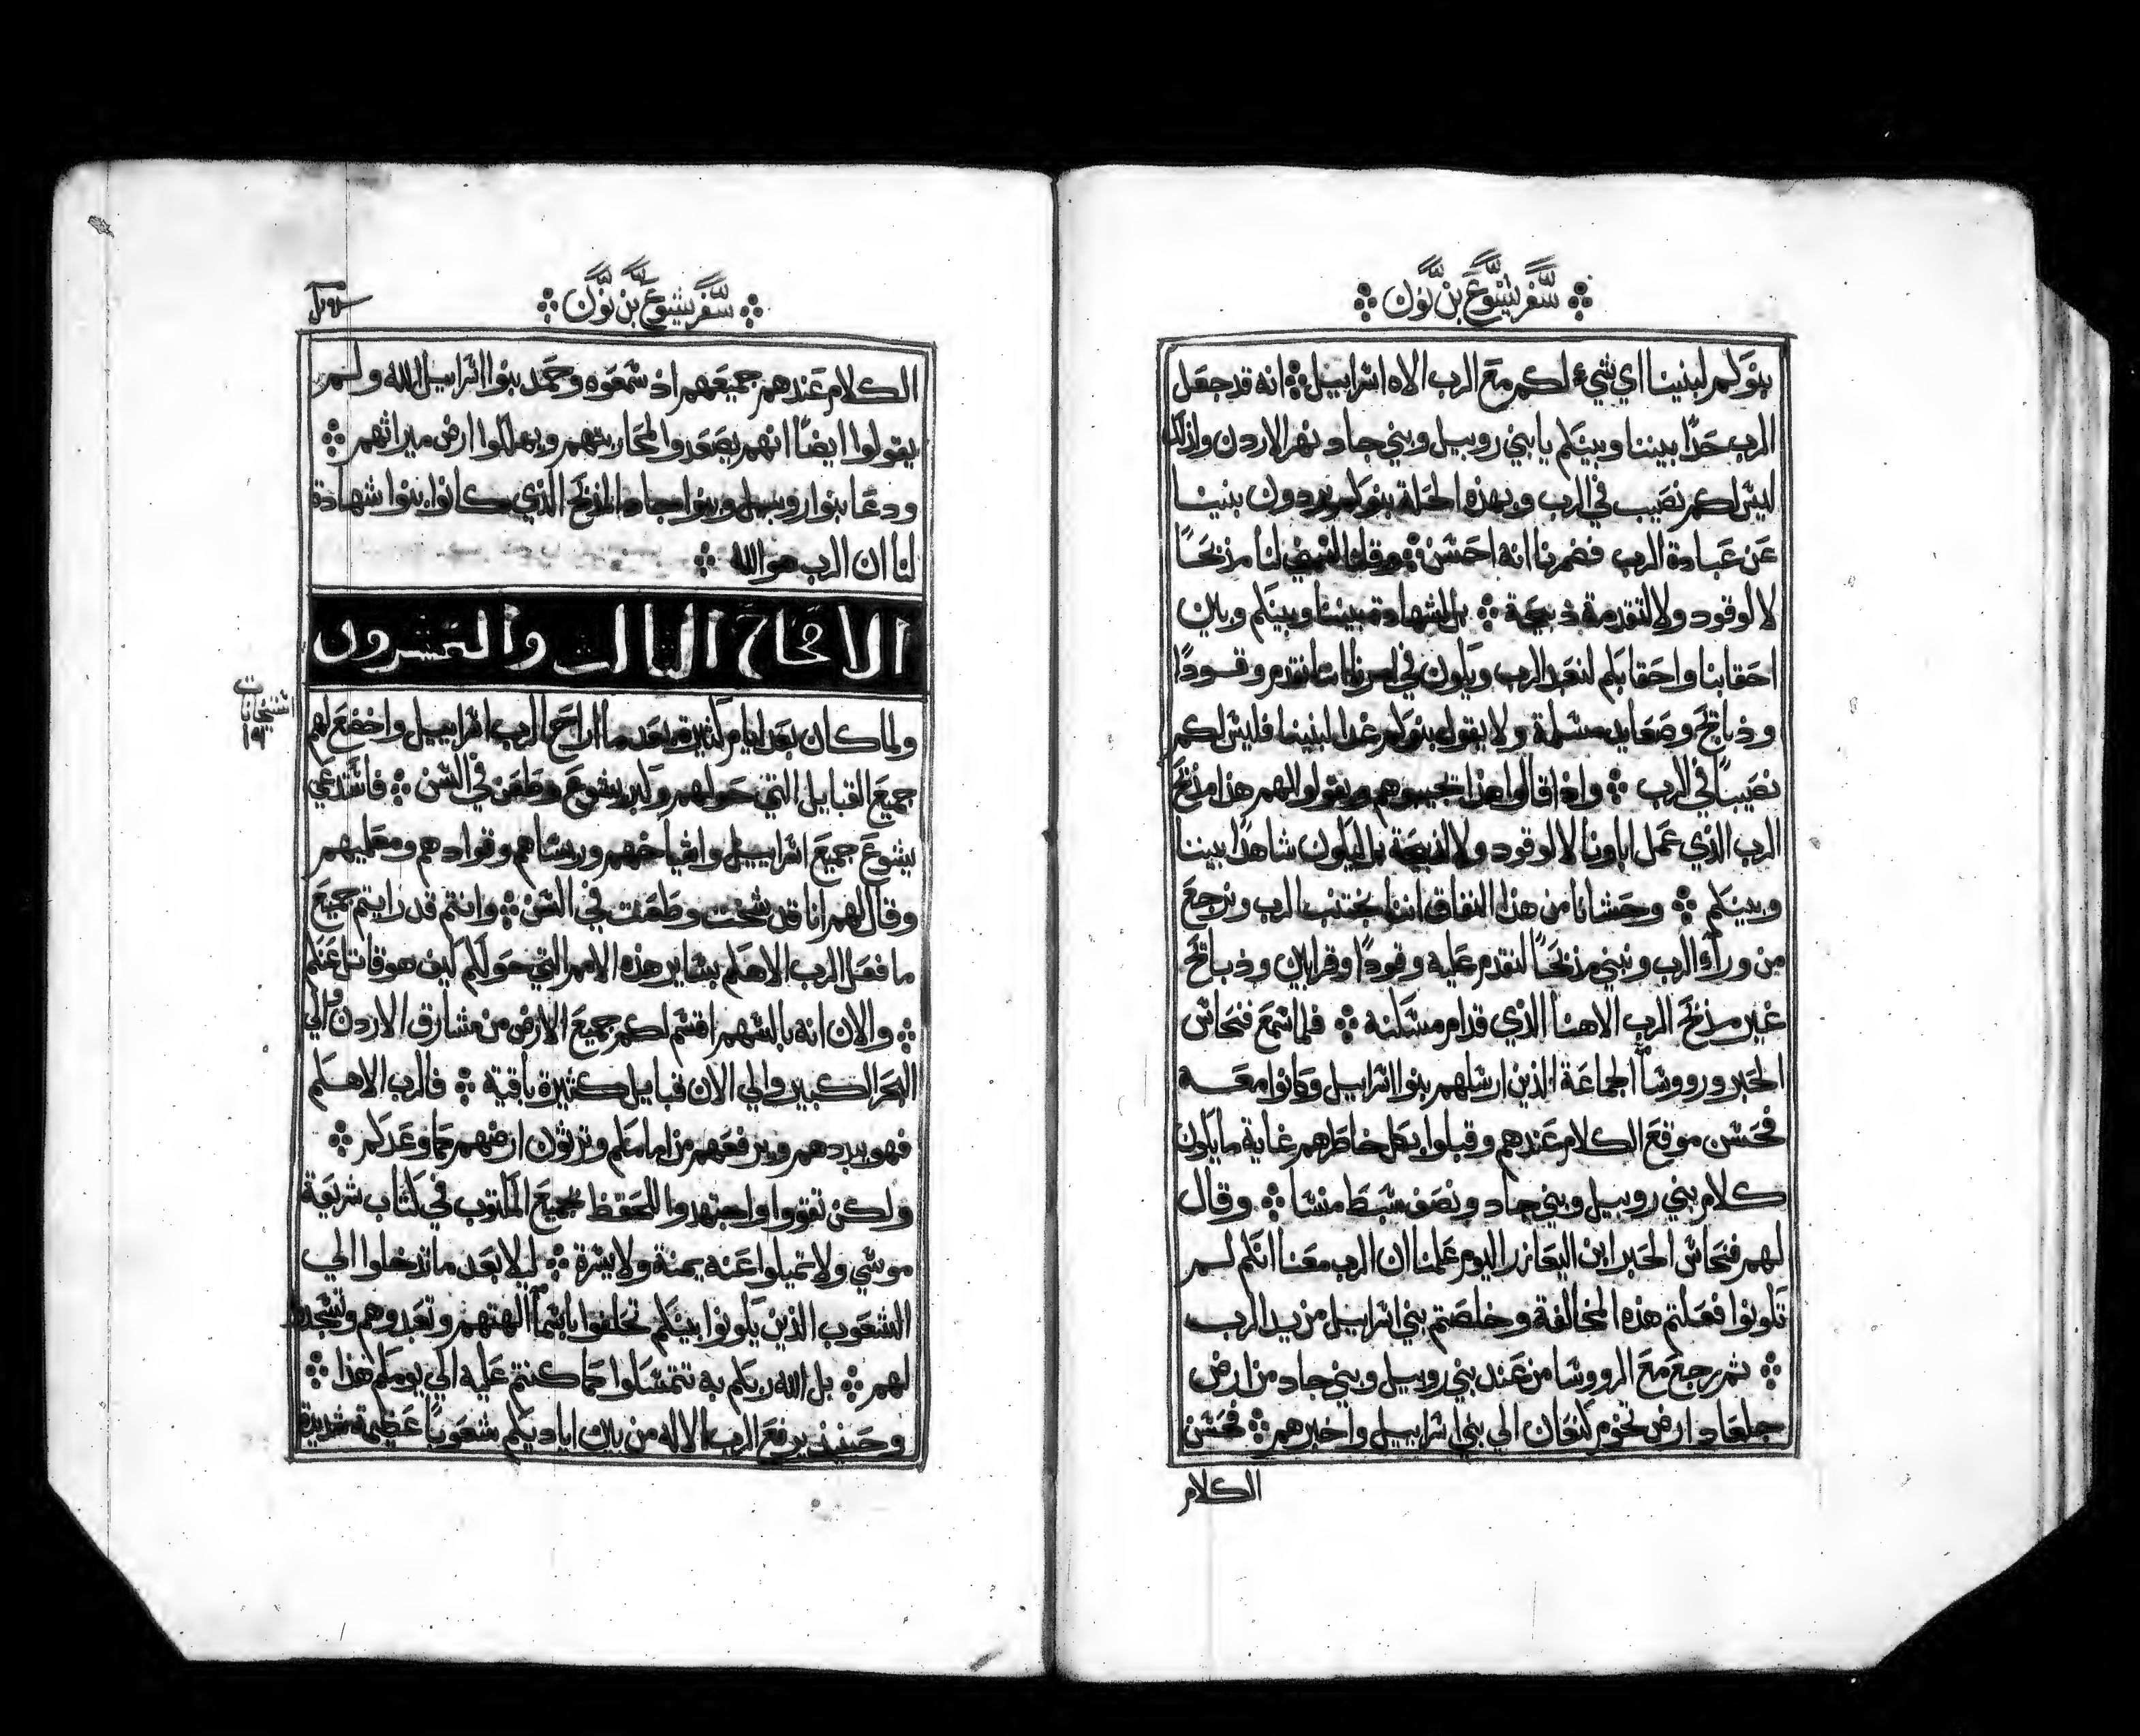 سفر يشوع بن نون
بنوكم لبنينا اي شيء لكم مع الرب الاه اسراييل انه قد جعل
الرب حدًا بيننا وبينكم يا بني روبيل وبني جاد نهر الاردن واذلك
ليس لكم نصيب في الرب وبهذه الحلة بنوكم يردون بنينا
عن عبادة الرب فضمرنا انه احسن وقلنا لنا مذبحًا
لا لوقود ولا لتقدمة ذبيحة بل لشهادة بيننا وبينكم وبين
احقابنا واحقابكم لنعبد الرب ويكون في لنا ان نقدم وقودًا
وذبايح وصعايد مسلمة ولا يقول بنوكم غدا لبنينا فليس لكم
نصيبًا في الرب واذا قالوا هذا تجيبوهم وتقولوا لهم هذا مذبح
الرب الذي عمل اباونا لا لوقود ولا لذبيحة بل ليكون شاهدًا بيننا
وبينكم وحشانا من هذا النفاق اننا نجتنب الرب ونرجع
من ورآء الرب ونبني مذبحًا لنقدم عليه وقودًا وقرابين وذبايح
غير مذبح الرب الاهنا الذي قدام مسكنه فلما سمع فنحاس
الحبر ورووسآ الجماعة الذين ارسلهم بنوا اسراييل وكانوا معه
فحسن موقع الكلام عندهم وقبلوا بكل خاطرهم غاية ما يكون
كلام بني روبيل وبني جاد ونصف سبط منسا وقال
لهم فنحاس الحبر ابن اليعازر اليوم علمنا ان الرب معنا انكم لم
تكونوا فعلتم هذه المخالفة وخلصتم بني اسراييل من يد الرب
ثم رجع مع الرووسا من عند بني روبيل وبني جاد من ارض
جلعاد ارض تخوم كنعان الي بني اسراييل واخبرهم فحسن
الكلام
سفر يشوع بن نون
الكلام عندهم جميعهم اذ سمعوه وحمد بنوا اسراييل الله ولم
يقولوا ايضًا انهم يصعدوا لمحاربتهم ويهلكوا ارض ميراثهم
ودعا بنوا روبيل وبنوا جاد المذبح الذي كانوا بنوا شهادة
لنا ان الرب هو الله
الاصحاح الثالث والعشرون
ولما كان بعد ايام كثيرة بعد ما اراح الرب اسراييل واخضع لهم
جميع القبايل التي حولهم وكبر يشوع وطعن في السن فاستدعي
يشوع جميع اسراييل واشياخهم وريساهم وقوادهم ومعلميهم
وقال لهم انا قد شخت وطعنت في السن وانتم قد رايتم جميع
ما فعل الرب الاهكم بساير هذه الامم التي حولكم كيف هو قاتل عنكم
والان انه بالسهم اقسم لكم جميع الارض من مشارق الاردن والي
البحر الكبير والي الان قبايل كثيرة باقية فالرب الاهكم
فهو يبددهم ويرفعهم من امامكم وترثون ارضهم كما وعدكم
ولكن تقووا واجتهدوا لحفظ جميع المكتوب في كتاب شريعة
موسي ولا تميلوا عنه يمنة ولا يسرة ليلا بعد ما تدخلوا الي
الشعوب الذين يكونوا بينكم تحلفوا باسمآ الهتهم وتعبدوهم وتسجدوا
لهم بل الله ربكم به تتمسكوا كما كنتم عليه الي يومكم هذا
وحينيذ يرفع الرب الاله من بين اياديكم شعوبًا عظيمة شديدة